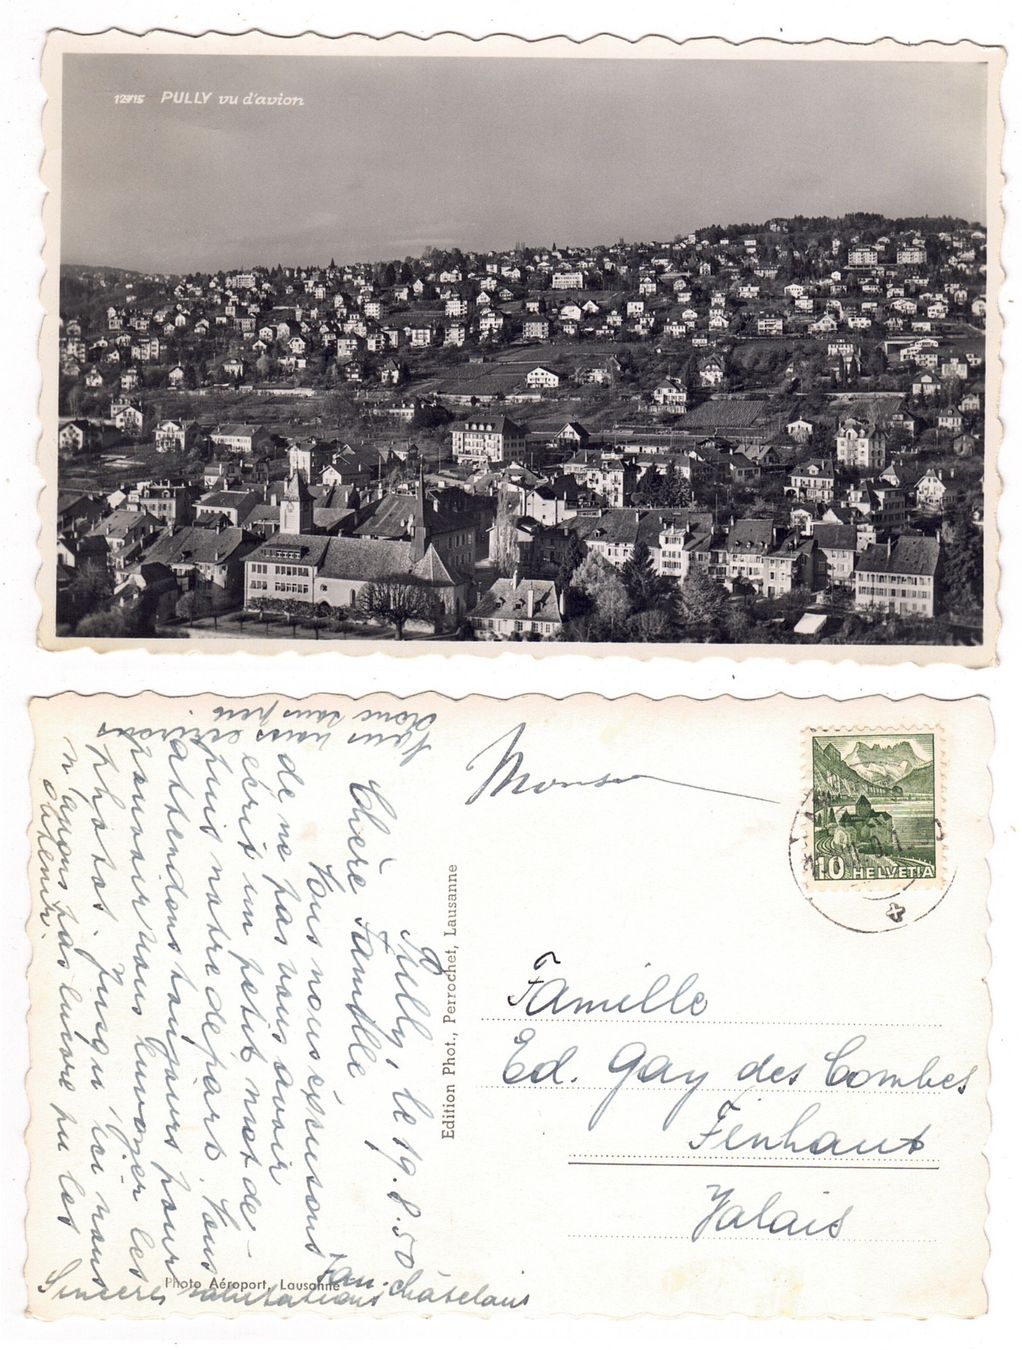 12715 PULLY vu d'avion
Pully, le 19.8.50
Chère Famille
Nous nous éxcusons
de ne pas vous avoir
écrit un petit mot de-
puis notre depart. Nous
attendons toujours pour
pouvoir vous envoyer les
photos. Jusqu'ici nous
n'avons pas encore pu les
obtenir.
Nous vous ecrirons
donc sous peu
Sinceres salutations Fam. Châtelans
Edition Phot., Perrochet, Lausanne
Photo Aéroport, Lausanne
10 HELVETIA
Famille
Ed. Gay des Combes
Finhaut
Valais